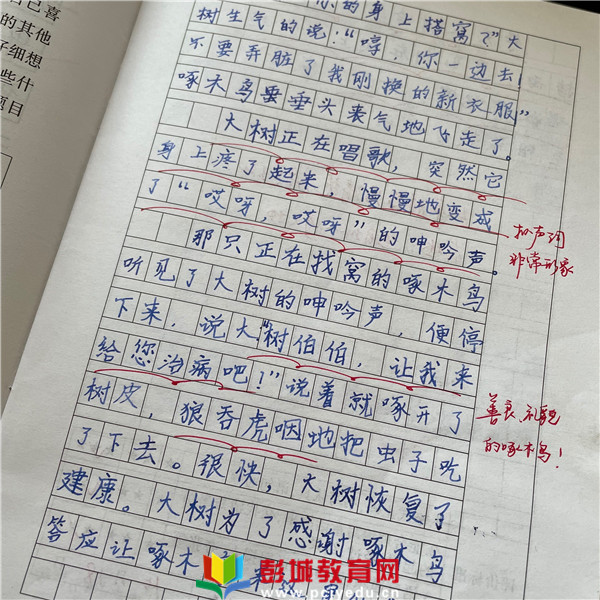 己喜
的其他
子细想
些什
题目
你的身上搭窝？”大
树生气的说：“哼，你一边去！
不要弄脏了我刚换的新衣服”
啄木鸟垂垂头丧气地飞走了。
大树正在唱歌，突然它
身上疼了起来，慢慢地变成
了“哎呀，哎呀”的呻吟声。
拟声词
非常形象
那只正在找窝的啄木鸟
听见了大树的呻吟声，便停
下来，说大“树伯伯，让我来
给您治病吧！”说着就啄开了
树皮，狼吞虎咽地把虫子吃
善良、礼貌
的啄木鸟！
了下去。很快，大树恢复了
建康。大树为了感谢啄木鸟
答应让啄木
彭城教育网
www.pcjyedu.cn